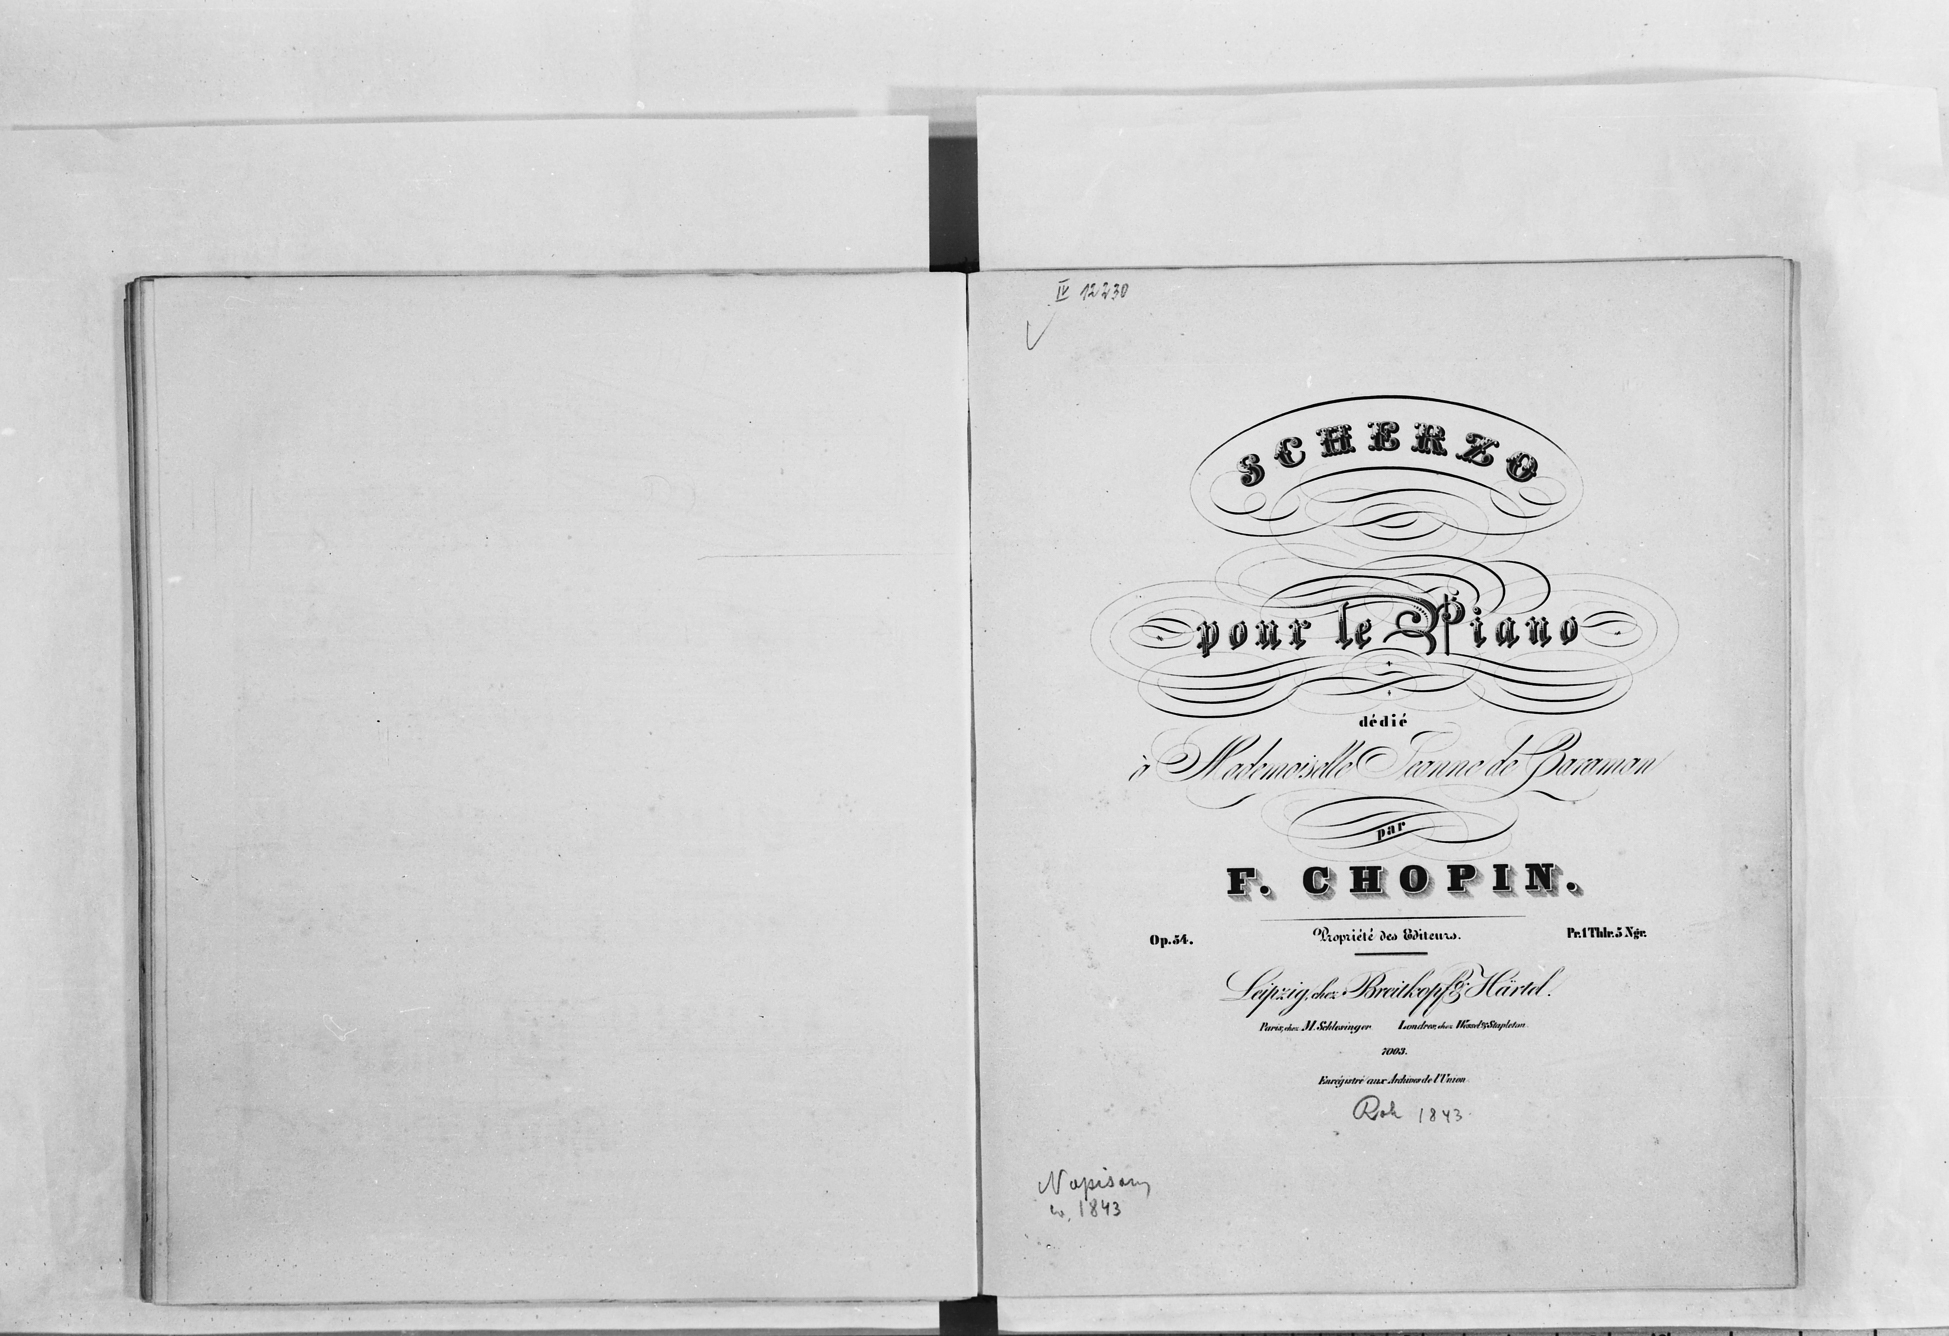 IV 12230
SCHERZO
pour le Piano
dédié
à Mademoiselle Jeanne de Caraman
par
F. CHOPIN.
Op. 54.
Propriété des Editeurs.
Pr. 1 Thlr. 5 Ngr.
Leipzig, chez Breitkopf & Härtel.
Paris, chez M. Schlesinger Londres, chez Wessel & Stapleton
7003.
Enrégistré aux Archives de l'Union
Rok 1843.
Napisany
w. 1843